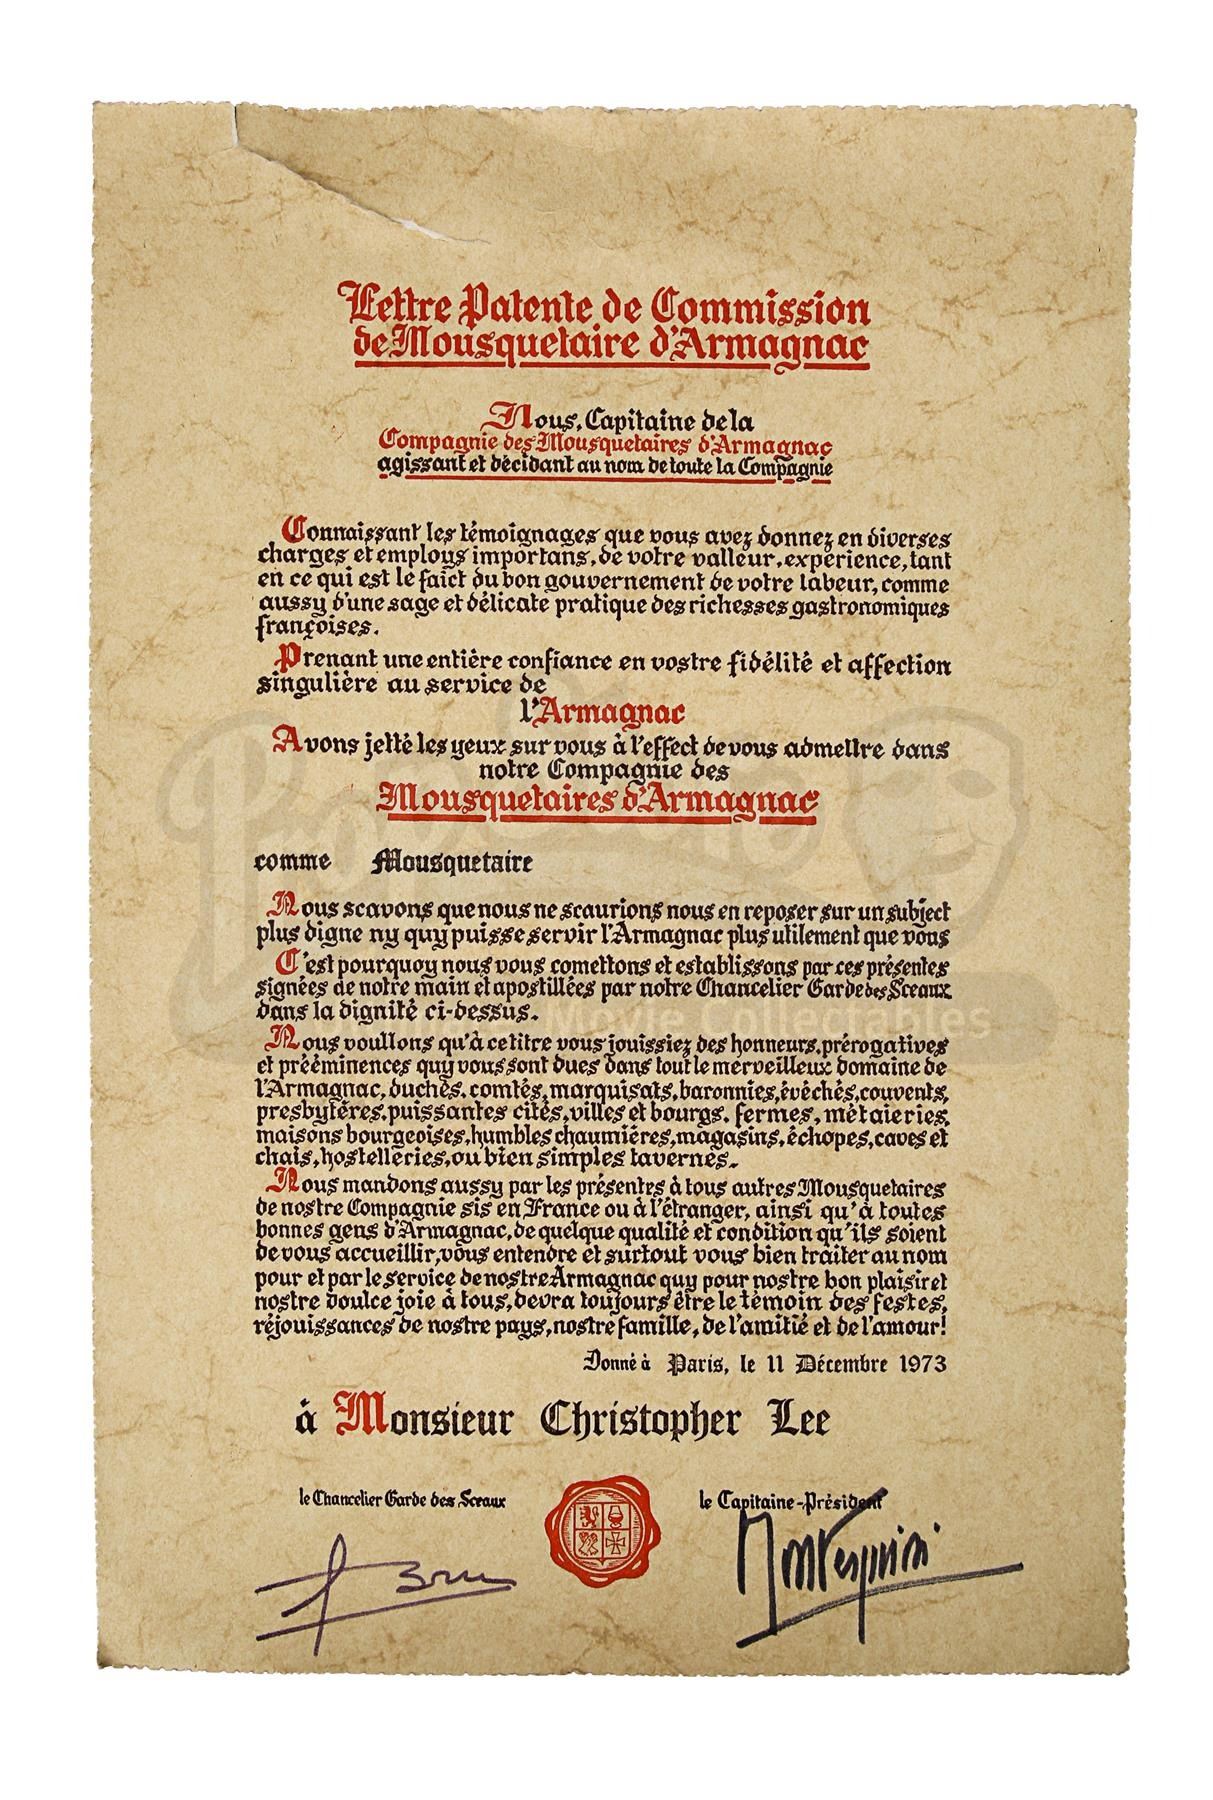 Lettre Patente de Commission
de Mousquetaire d'Armagnac
Nous, Capitaine de la
Compagnie des Mousquetaires d'Armagnac
agissant et décidant au nom de toute la Compagnie
Connaissant les témoignages que vous avez donnez en diverses
charges et employs importans, de votre valleur, expérience, tant
en ce qui est le faict du bon gouvernement de votre labeur, comme
aussy d'une sage et délicate pratique des richesses gastronomiques
françoises.
Prenant une entière confiance en vostre fidélité et affection
singulière au service de
l'Armagnac
Avons jetté les yeux sur vous à l'effect de vous admettre dans
notre Compagnie des
Mousquetaires d'Armagnac
comme Mousquetaire
Nous scavons que nous ne scaurions nous en reposer sur un subject
plus digne ny quy puisse servir l'Armagnac plus utilement que vous
C'est pourquoy nous vous comettons et establissons par ces présentes
signées de notre main et apostillées par notre Chancelier Garde des Sceaux
dans la dignité ci-dessus.
Nous voullons qu'à ce titre vous jouissiez des honneurs, prérogatives
et prééminences quy vous sont dues dans tout le merveilleux domaine de
l'Armagnac, duchés, comtés, marquisats, baronnies, évéchés, couvents,
presbytères, puissantes cités, villes et bourgs, fermes, métaieries,
maisons bourgeoises, humbles chaumières, magasins, échopes, caves et
chais, hostelleries, ou bien simples tavernes.
Nous mandons aussy par les présentes à tous autres Mousquetaires
de nostre Compagnie sis en France ou à l'étranger, ainsi qu'à toutes
bonnes gens d'Armagnac, de quelque qualité et condition qu'ils soient
de vous accueillir, vous entendre et surtout vous bien traiter au nom
pour et par le service de nostre Armagnac quy pour nostre bon plaisir et
nostre doulce joie à tous, devra toujours être le témoin des festes,
réjouissances de nostre pays, nostre famille, de l'amitié et de l'amour!
Donné à Paris, le 11 Décembre 1973
à Monsieur Christopher Lee
le Chancelier Garde des Sceaux le Capitaine-Président